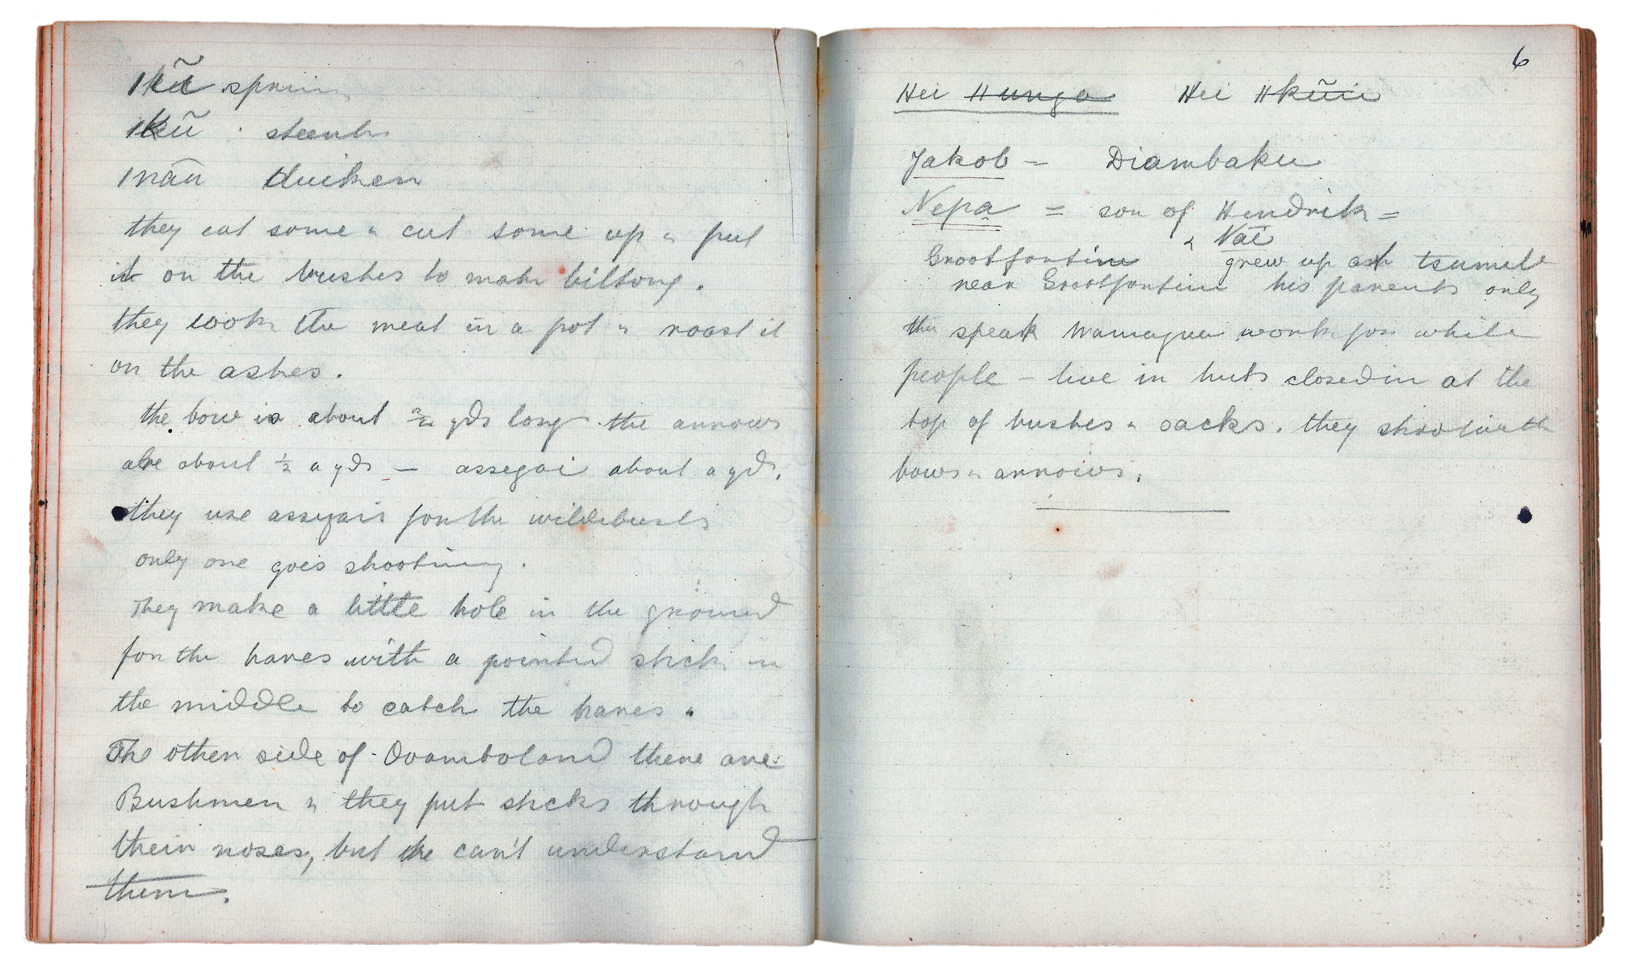 |kũ sprin
|kũ . steenb
|nāu duiken
they eat some & cut some up & put
it on the bushes to make biltong.
they cook the meat in a pot & roast it
on the ashes.
the bow is about 2/2 yds long the arrows
are about ½ a yds — assegai about a yd.
they use assegais for the wildebeests
only one goes shooting.
They make a little hole in the ground
for the hares with a pointed stick in
the middle to catch the hares.
The other side of Ovamboland there are
Bushmen & they put sticks through
their noses, but he can't understand
them.
6
Hei ||unga Hei ||kũii
Jakob – Diambaku
Nepa = son of Hendrik =
& Nai
Grootfontein grew up at tsumeb
near Grootfontein his parents only
speak work for white
people – live in huts closed in at the
top of bushes & sacks. they shoot with
bows & arrows.